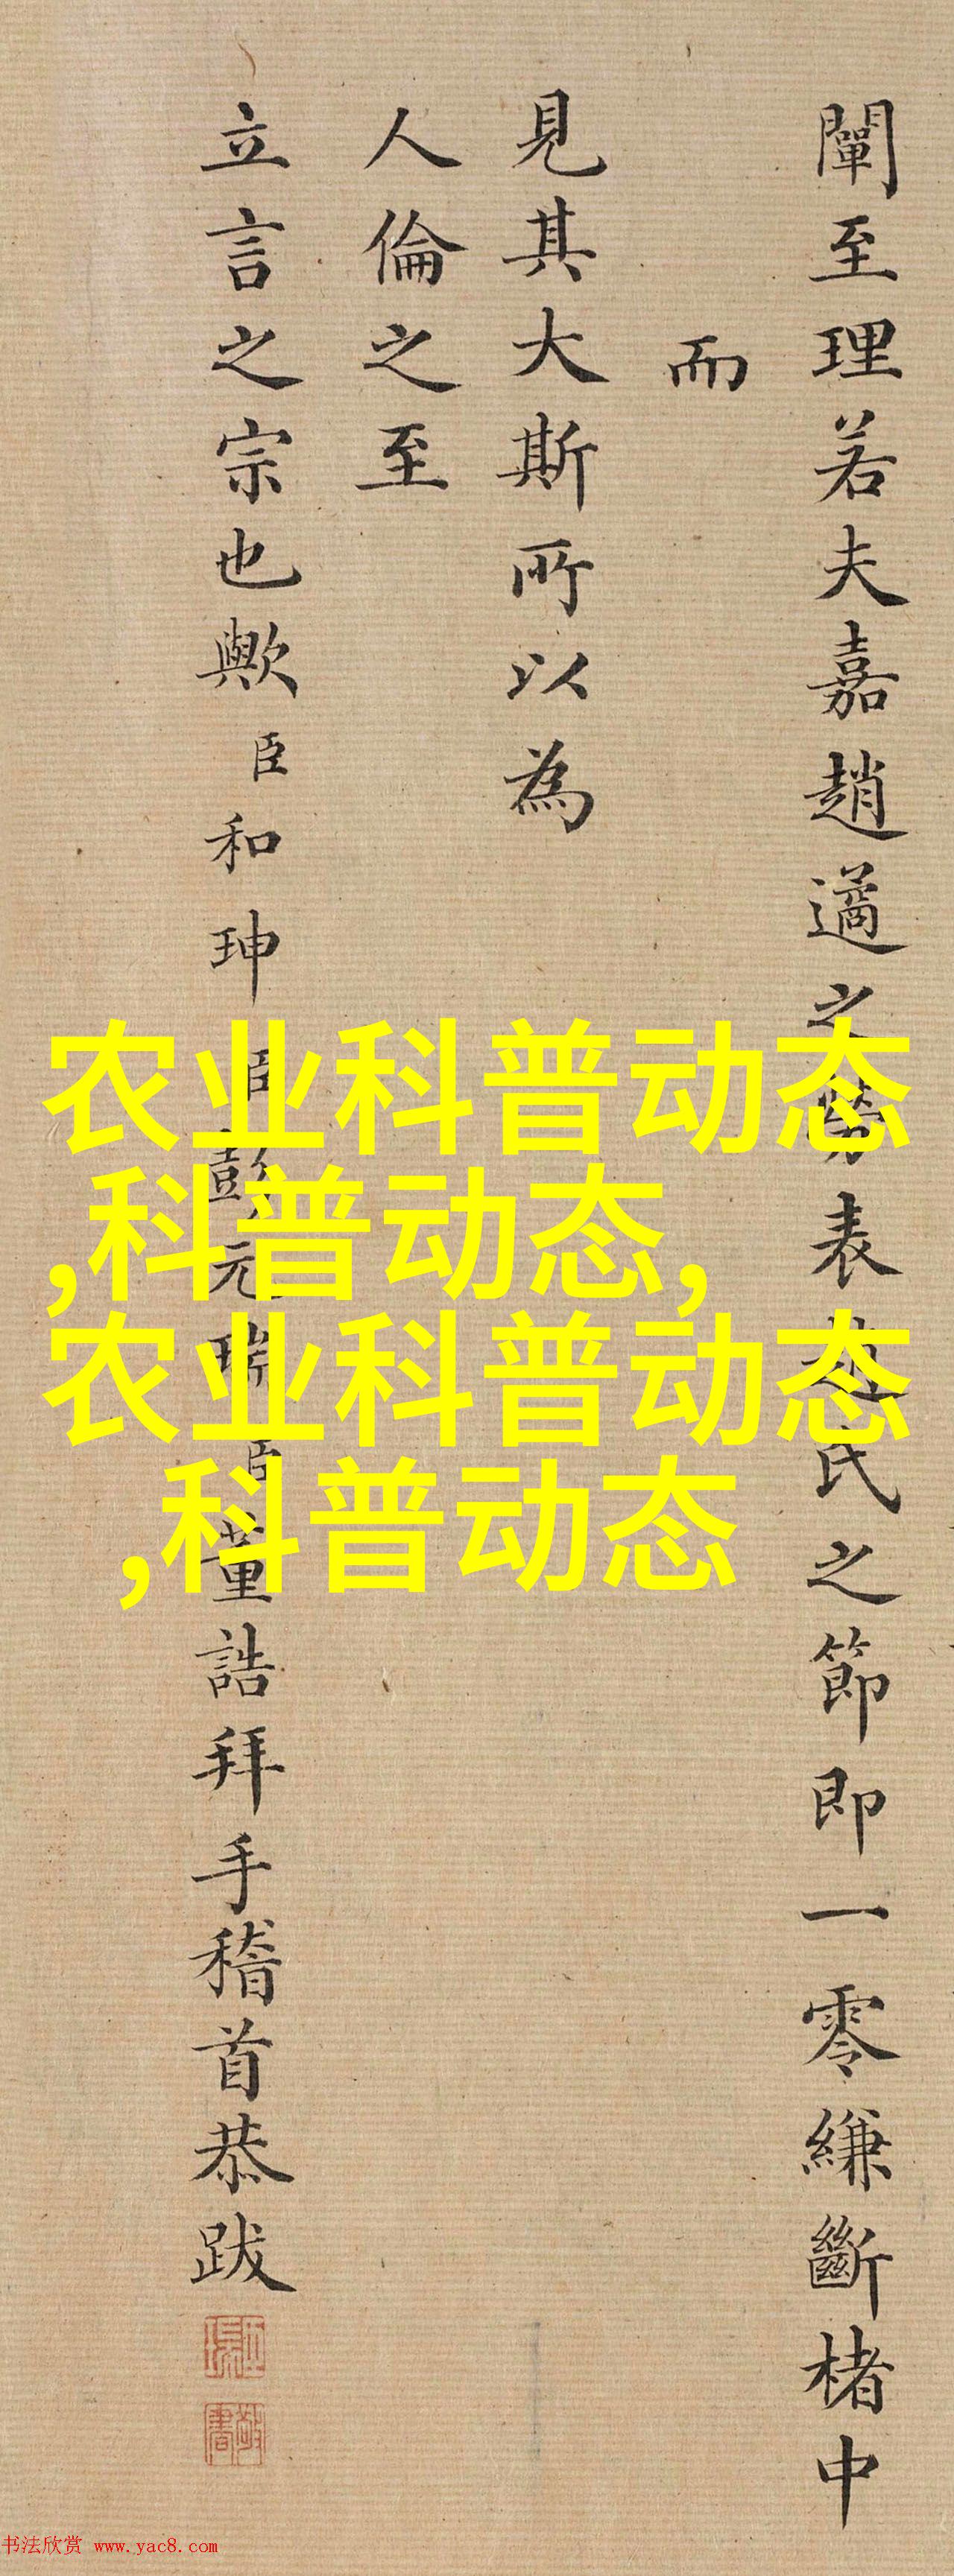 闡至理若夫嘉趙遹之勞表趙氏之節即一零縑斷楮中
而
見其大斯所以為
人倫之至
立言之宗也歟臣和珅臣彭元瑞臣董誥拜手稽首恭跋
农业科普动态
,科普动态,
农业科普动态
,科普动态
书法欣赏 www.yac8.com